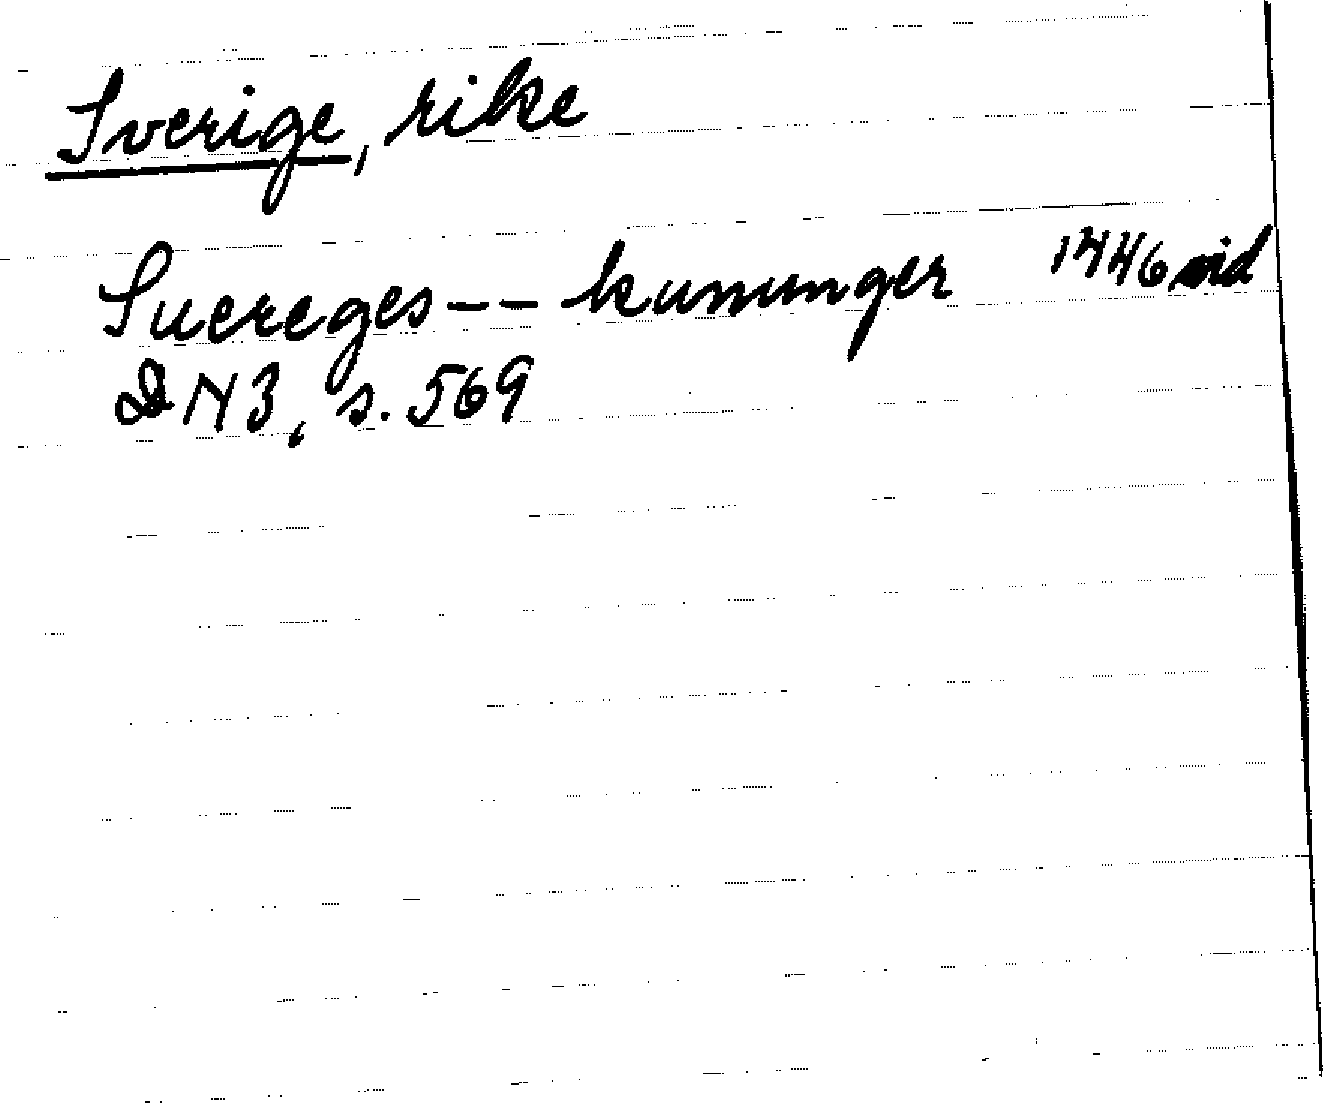 Sverige, rike
Suereges -- kununger 1446 vid
DN3, s. 569